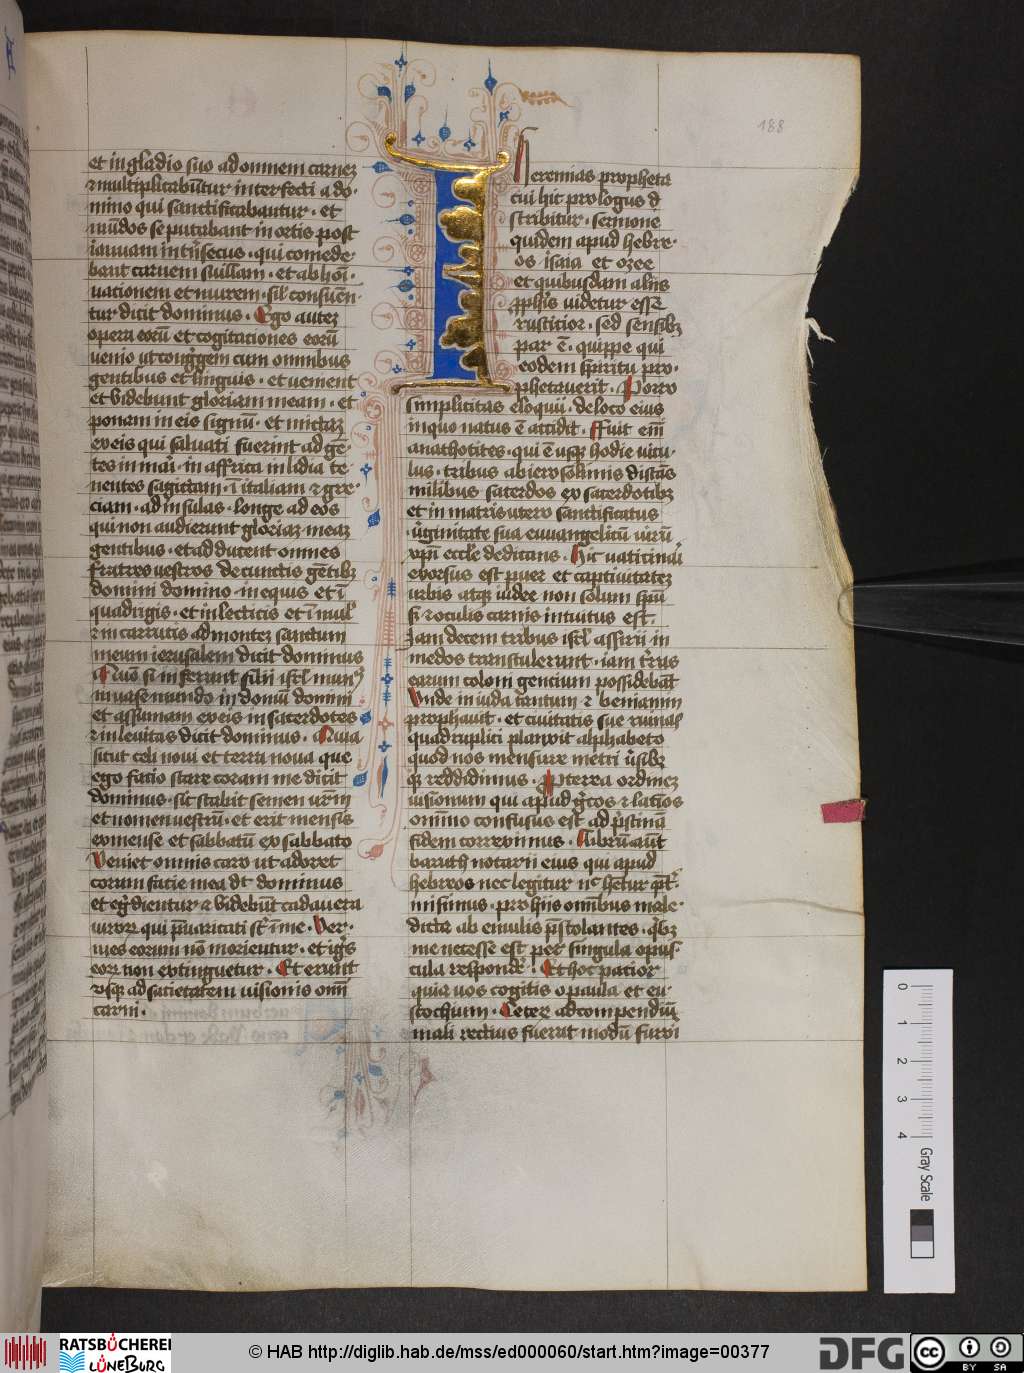 et in gladio suo ad omnem carnez
⁊ multiplicabūtur interfecti a do-
mino qui sanctificabantur · et
mūdos se putabant in ortis post
ianuam intrīsecus · qui comede-
bant carnem suillam · et abhoī-
nationem et murem · sil' consumen-
tur dicit dominus · Ego autez
opera eorū et cogitationes eorū
uenio ut congregem cum omnibus
gentibus et linguis · et uenient
et videbunt gloriam meam · et
ponam in eis signū · et mittaz
ex eis qui saluati fuerint ad gē-
tes in mari · in affrica in lidia te-
nentes sagittam · ī italiam ⁊ gre-
ciam · ad insulas · longe · ad eos
qui non audierunt gloriaz meaz
gentibus · et adducent omnes
fratres vestros de cunctis gētibz
domini domino · in equis et ī
quadrigis · et in lecticis et ī mul'
⁊ in carrucis ad montez sanctum
meum ierusalem dicit dominus
Quō si inferunt filii isrl munꝰ
in uase mundo in domū domini
et assumam ex eis in sacerdotes
⁊ in leuitas dicit dominus · Quia
sicut celi noui et terra noua que
ego facio stare coram me dicit
dominus · sic stabit semen vr̄m
et nomen uestrū · et erit mensis
ex mense et sabbatū ex sabbato
Veniet omnis caro ut adoret
coram facie mea dt dominus
et egredientur ⁊ videbūt cadauera
uiroꝝ qui p̄uaricati st̄ ī me · Ver-
mes eorum nō morietur · et ignis
eoꝝ non extinguetur · Et erunt
vsqz ad sacietatem uisionis omī
carni ·
188
I
Heremias propheta
cui hic prologus
scribitur · sermone
quidem apud hebre-
os isaia et ozee
et quibusdam aliis
prophis uidetur esse
rusticior · sed sensibz
par ē · quippe qui
eodem spiritu pro-
phetauerit · Porro
simplicitas eloquii · de loco eius
in quo natus ē accidit · Fuit eī
anathotites · qui ē usqz hodie uicu-
lus · tribus ab ierosolimis distās
milibus sacerdos ex sacerdotibz
et in matris utero sanctificatus
uirginitate sua euuangelicū uirū
xp̄i eccl'e dedicans · Hic uaticinari
exorsus est puer et captiuitatez
urbis atqz iudee non solum spū
sz ⁊ oculis carnis intuitus est ·
Jam decem tribus isrl' assirii in
medos transtulerunt · iam t'ras
earum colonie gentium possidebāt
Vnde in iuda tantum ⁊ beniamin
prophauit · et ciuitatis sue ruinas
quadruplici planxit alphabeto
quod nos mensure metri uersibz
qz reddidimus · Preterea ordinez
uisionum qui apud grecos ⁊ latinos
omnino confusus est ad pristinā
fidem correximus · Librū aut
baruch notarii eius qui apud
hebreos nec legitur nc habetur
misimus · pro hiis omnibus male-
dicta ab emulis p̄stolantes · quibz
me necesse est per singula opus-
cula respondere · Et hoc patior
quia uos cogitis o paula et eu-
stochium · Ceter ad compendium
mali rectius fuerat modū furori
0 1 2 3 4
Gray Scale
RATSBÜCHEREI
LÜNEBURG
© HAB http://diglib.hab.de/mss/ed000060/start.htm?image=00377
DFG
cc BY SA